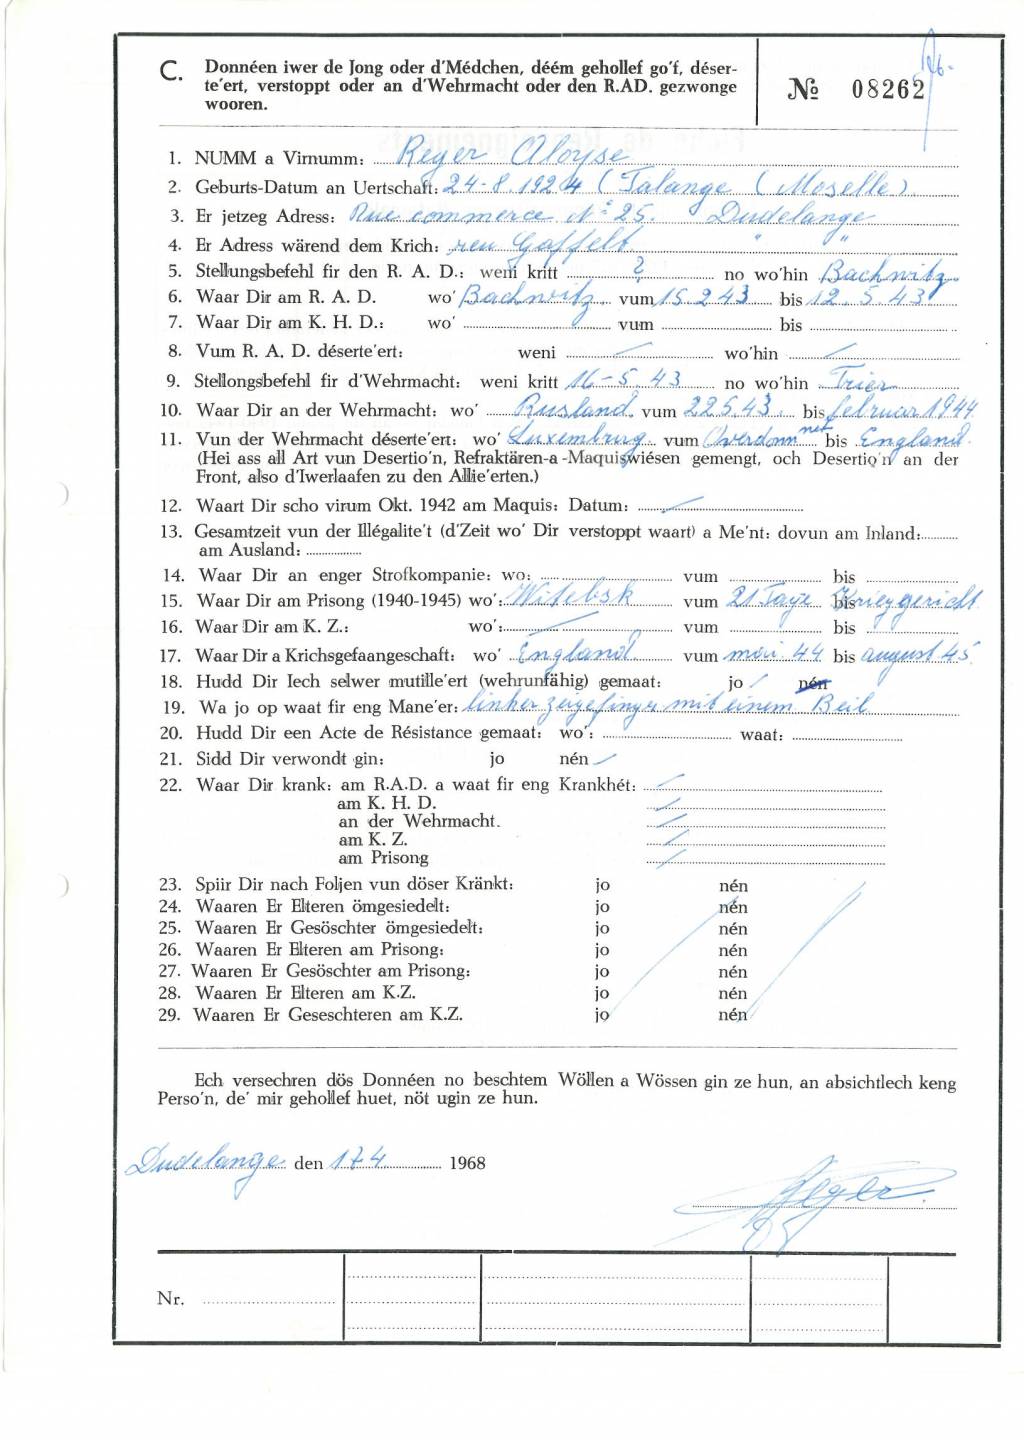 C. Donnéen iwer de Jong oder d'Médchen, déém gehollef go'f, déser-
te'ert, verstoppt oder an d'Wehrmacht oder den R.AD. gezwonge
wooren.
№ 08262
1. NUMM a Virnumm: Reger Aloyse
2. Geburts-Datum an Uertschaft: 24-8.1924 (Talange (Moselle)
3. Er jetzeg Adress: Rue commerce N° 25. Dudelange
4. Er Adress wärend dem Krich: reu Gaffelt " "
5. Stellungsbefehl fir den R. A. D.: weni kritt ? no wo'hin Bachwitz
6. Waar Dir am R. A. D. wo' Bachwitz vum 15.2.43 bis 12.5.43
7. Waar Dir am K. H. D.: wo' vum bis
8. Vum R. A. D. déserte'ert: weni / wo'hin /
9. Stellongsbefehl fir d'Wehrmacht: weni kritt 16-5.43 no wo'hin Trier
10. Waar Dir an der Wehrmacht: wo' Rusland vum 22.5.43. bis februar 1944
11. Vun der Wehrmacht déserte'ert: wo' Luxemburg vum bis England.
(Hei ass all Art vun Desertio'n, Refraktären-a-Maquiswiésen gemengt, och Desertio'n an der
Front, also d'Iwerlaafen zu den Allie'erten.)
12. Waart Dir scho virum Okt. 1942 am Maquis: Datum: /
13. Gesamtzeit vun der Illégalite't (d'Zeit wo' Dir verstoppt waart) a Me'nt: dovun am Inland:
am Ausland:
14. Waar Dir an enger Strofkompanie: wo: vum bis
15. Waar Dir am Prison͏g (1940-1945) wo': Witebsk vum 21 Tage bis Krieggericht
16. Waar Dir am K. Z.: wo': / vum bis
17. Waar Dir a Krichsgefaangeschaft: wo' England. vum mai. 44 bis august 45
18. Hudd Dir Iech selwer mutille'ert (wehrunfähig) gemaat: jo / nén
19. Wa jo op waat fir eng Mane'er: linker zeigefinger mit einem Beil
20. Hudd Dir een Acte de Résistance gemaat: wo': waat:
21. Sidd Dir verwondt gin: jo nén /
22. Waar Dir krank: am R.A.D. a waat fir eng Krankhét: /
am K. H. D. /
an der Wehrmacht. /
am K. Z. /
am Prisong /
23. Spiir Dir nach Foljen vun döser Kränkt: jo nén
24. Waaren Er Elteren ömgesiedelt: jo nén
25. Waaren Er Gesöschter ömgesiedelt: jo nén
26. Waaren Er Elteren am Prisong: jo nén
27. Waaren Er Gesöschter am Prisong: jo nén
28. Waaren Er Elteren am K.Z. jo nén
29. Waaren Er Geseschteren am K.Z. jo nén
Ech versechren dös Donnéen no beschtem Wöllen a Wössen gin ze hun, an absichtlech keng
Perso'n, de' mir gehollef huet, nöt ugin ze hun.
Dudelange den 17 4 1968
Reger
Nr.